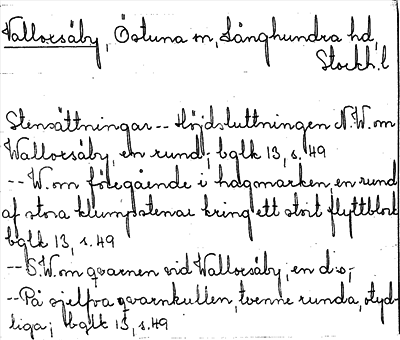 Vallorsäby, Östuna sn, Långhundra hd,
Stockh. l
Stensättningar -- Höjdsluttningen N.W. om
Wallorsäby, en rund; bglk 13, s. 49
-- W. om föregående i hagmarken, en rund
af stora klumpstenar kring ett stort flyttblock
bglk 13, s. 49
-- S.W. om qvarnen vid Wallorsäby, en d:o;
-- På sjelfva qvarnkullen, tvenne runda, otyd-
liga; bglk 13, s. 49